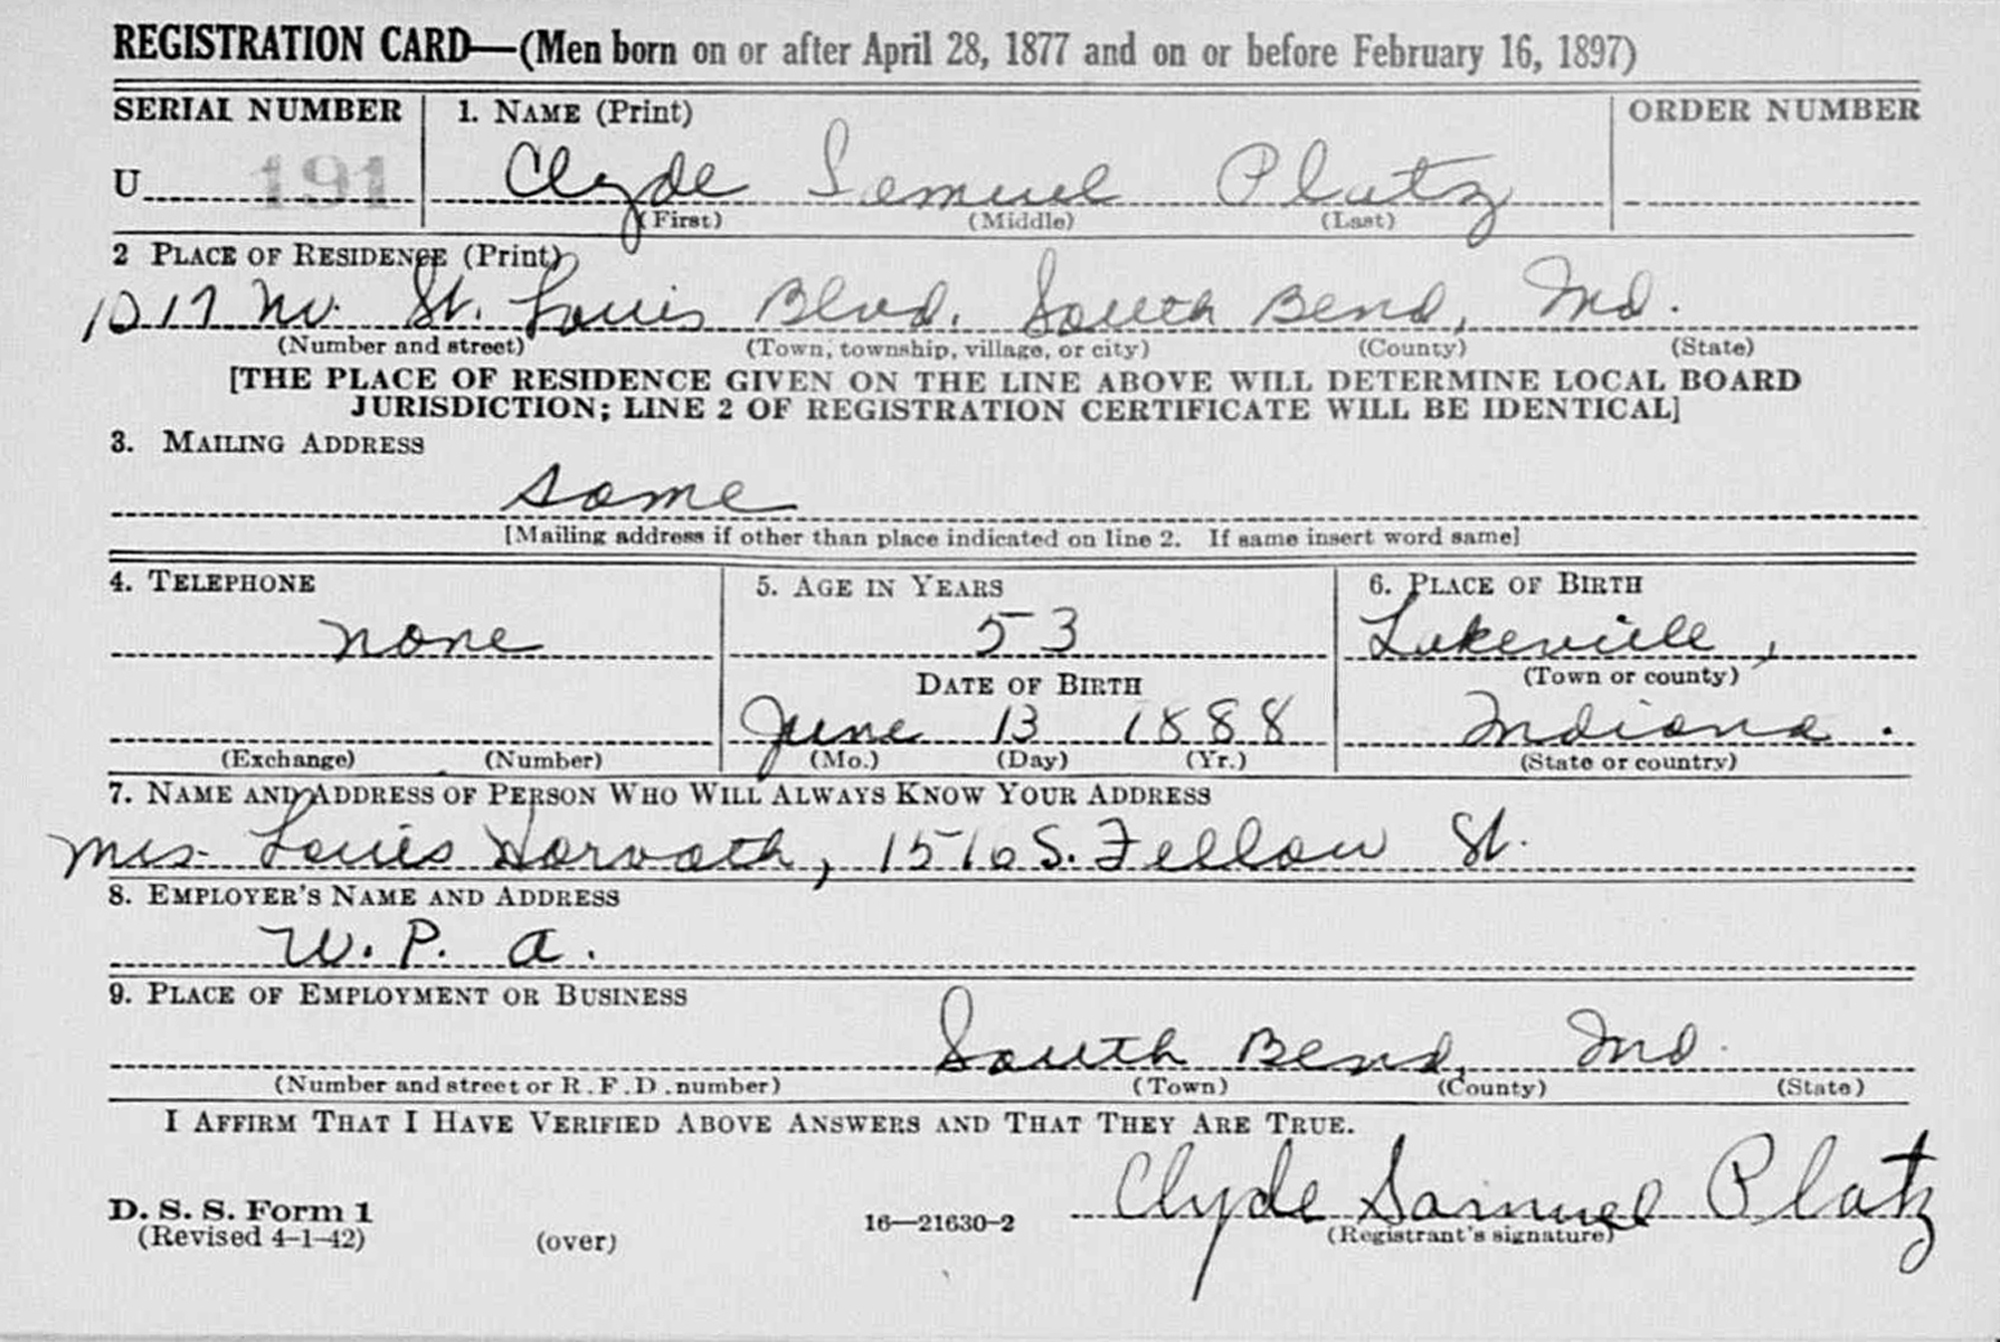 REGISTRATION CARD—(Men born on or after April 28, 1877 and on or before February 16, 1897)
SERIAL NUMBER 1. NAME (Print) ORDER NUMBER
U 191 Clyde Samuel Platz
(First) (Middle) (Last)
2 PLACE OF RESIDENCE (Print)
1017 No. St. Louis Blvd. South Bend, Ind.
(Number and street) (Town, township, village, or city) (County) (State)
[THE PLACE OF RESIDENCE GIVEN ON THE LINE ABOVE WILL DETERMINE LOCAL BOARD
JURISDICTION; LINE 2 OF REGISTRATION CERTIFICATE WILL BE IDENTICAL]
3. MAILING ADDRESS
same
[Mailing address if other than place indicated on line 2. If same insert word same]
4. TELEPHONE 5. AGE IN YEARS 6. PLACE OF BIRTH
none 53 Lakeville,
(Town or county)
DATE OF BIRTH
June 13 1888 Indiana.
(Exchange) (Number) (Mo.) (Day) (Yr.) (State or country)
7. NAME AND ADDRESS OF PERSON WHO WILL ALWAYS KNOW YOUR ADDRESS
Mrs. Louis Horvath, 1516 S. Fellow St.
8. EMPLOYER'S NAME AND ADDRESS
W. P. A.
9. PLACE OF EMPLOYMENT OR BUSINESS
South Bend, Ind.
(Number and street or R. F. D. number) (Town) (County) (State)
I AFFIRM THAT I HAVE VERIFIED ABOVE ANSWERS AND THAT THEY ARE TRUE.
Clyde Samuel Platz
D. S. S. Form 1
(Revised 4-1-42) (over) 16—21630-2 (Registrant's signature)